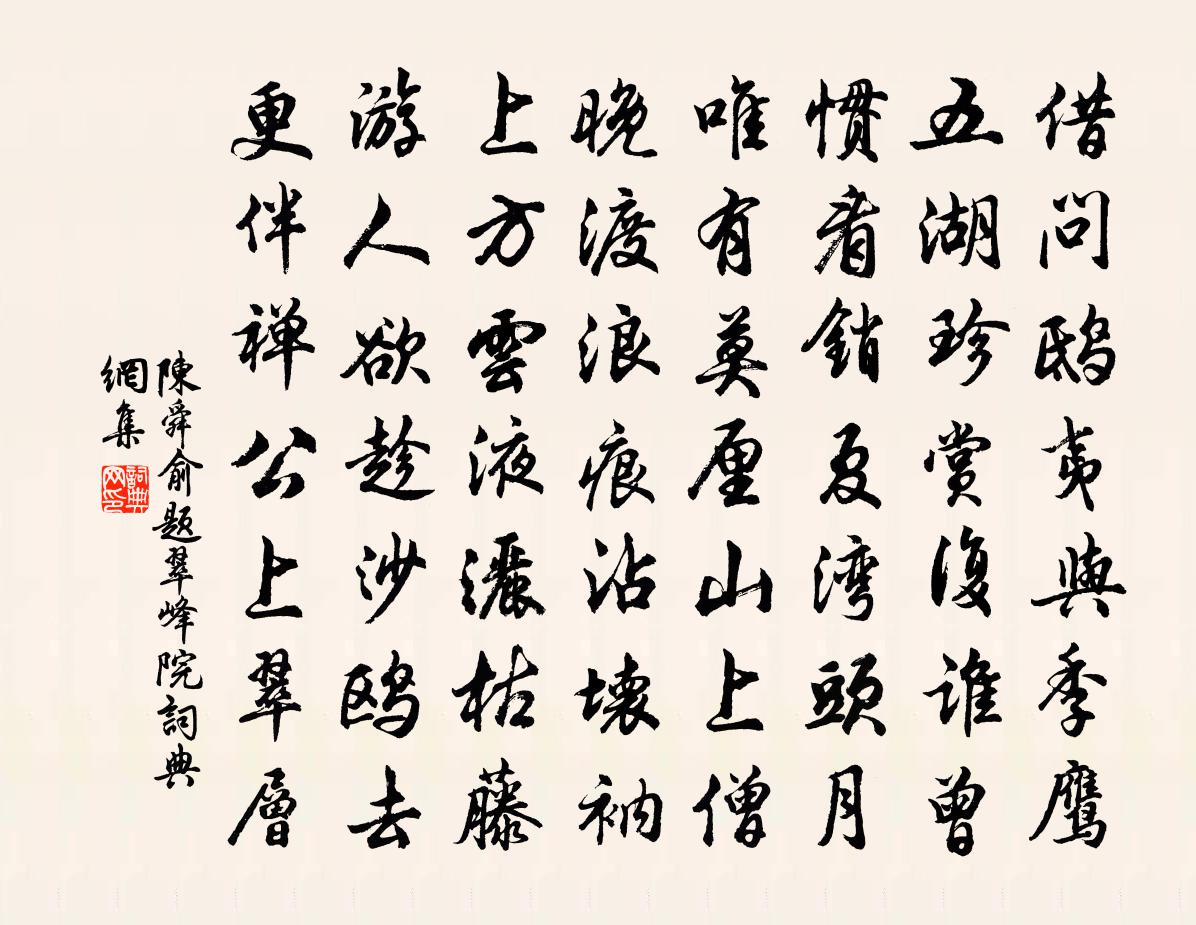 借问鸱夷與季鹰
五湖珍赏復谁曾
慣看銷夏湾頭月
唯有莫厘山上僧
晚渡浪痕沾壊衲
上方雲液灑枯藤
游人欲趁沙鸥去
更伴禅公上翠層
陳舜俞题翠峰院詞典
網集
詞典
网印